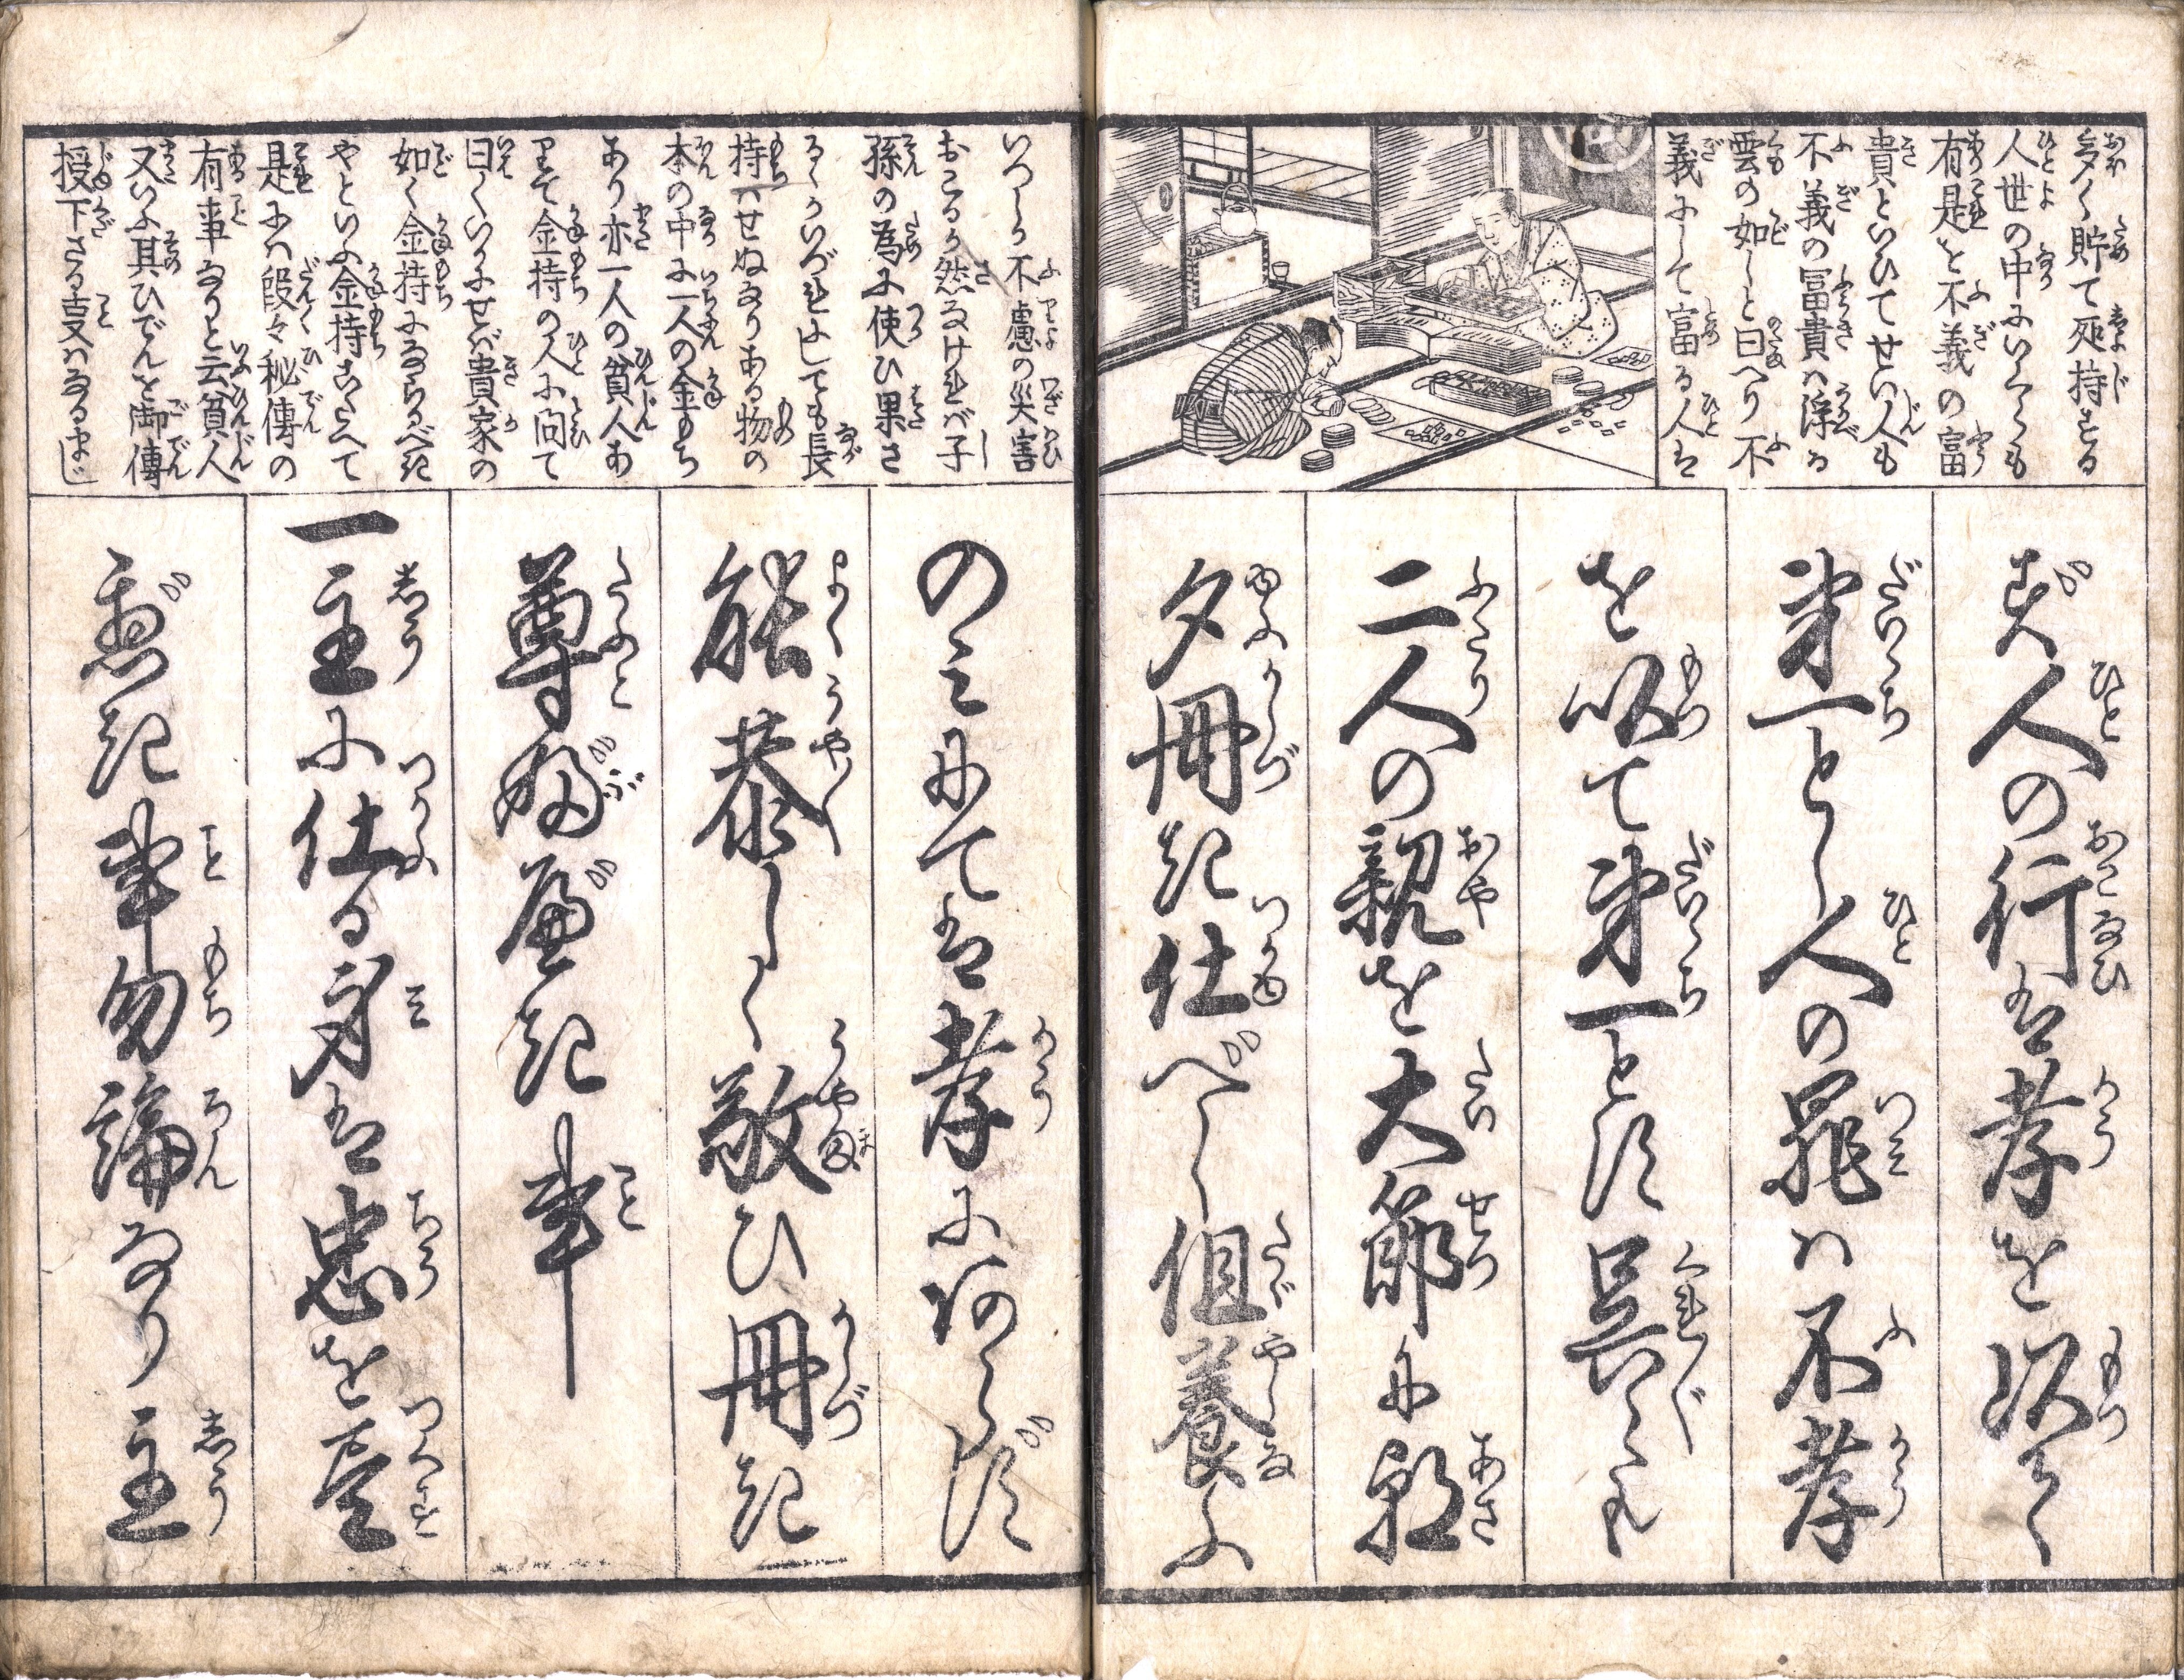 多く貯て死持をする
人世の中にいくらも
有是を不義の富
貴といひてせい人も
不義の冨貴ハ浮る
雲の如しと曰へり不
義にして富る人は
いつしか不慮の災害
おこるか然なけれバ子
孫の為に使ひ果さ
るゝかいづれにしても長
持ハせぬなりある物の
本の中に一人の金もち
あり亦一人の貧人あ
りて金持の人に問て
曰くいかにせバ貴家の
如く金持にならるべき
やといふ金持こたへて
是にハ段々秘傳の
有事なりと云貧人
又いふ其ひでんを御傳
授下さる事ハなるまじ
ず人の行は孝を以て
第一とし人の罪ハ不孝
を以て第一とす呉〳〵も
二人の親を大節に朝
夕冊き仕べし但養ふ
のみにては孝にあらず
能恭しく敬ひ冊き
尊ぶべき事
一主に仕る身は忠を尽
べき事勿論なり主